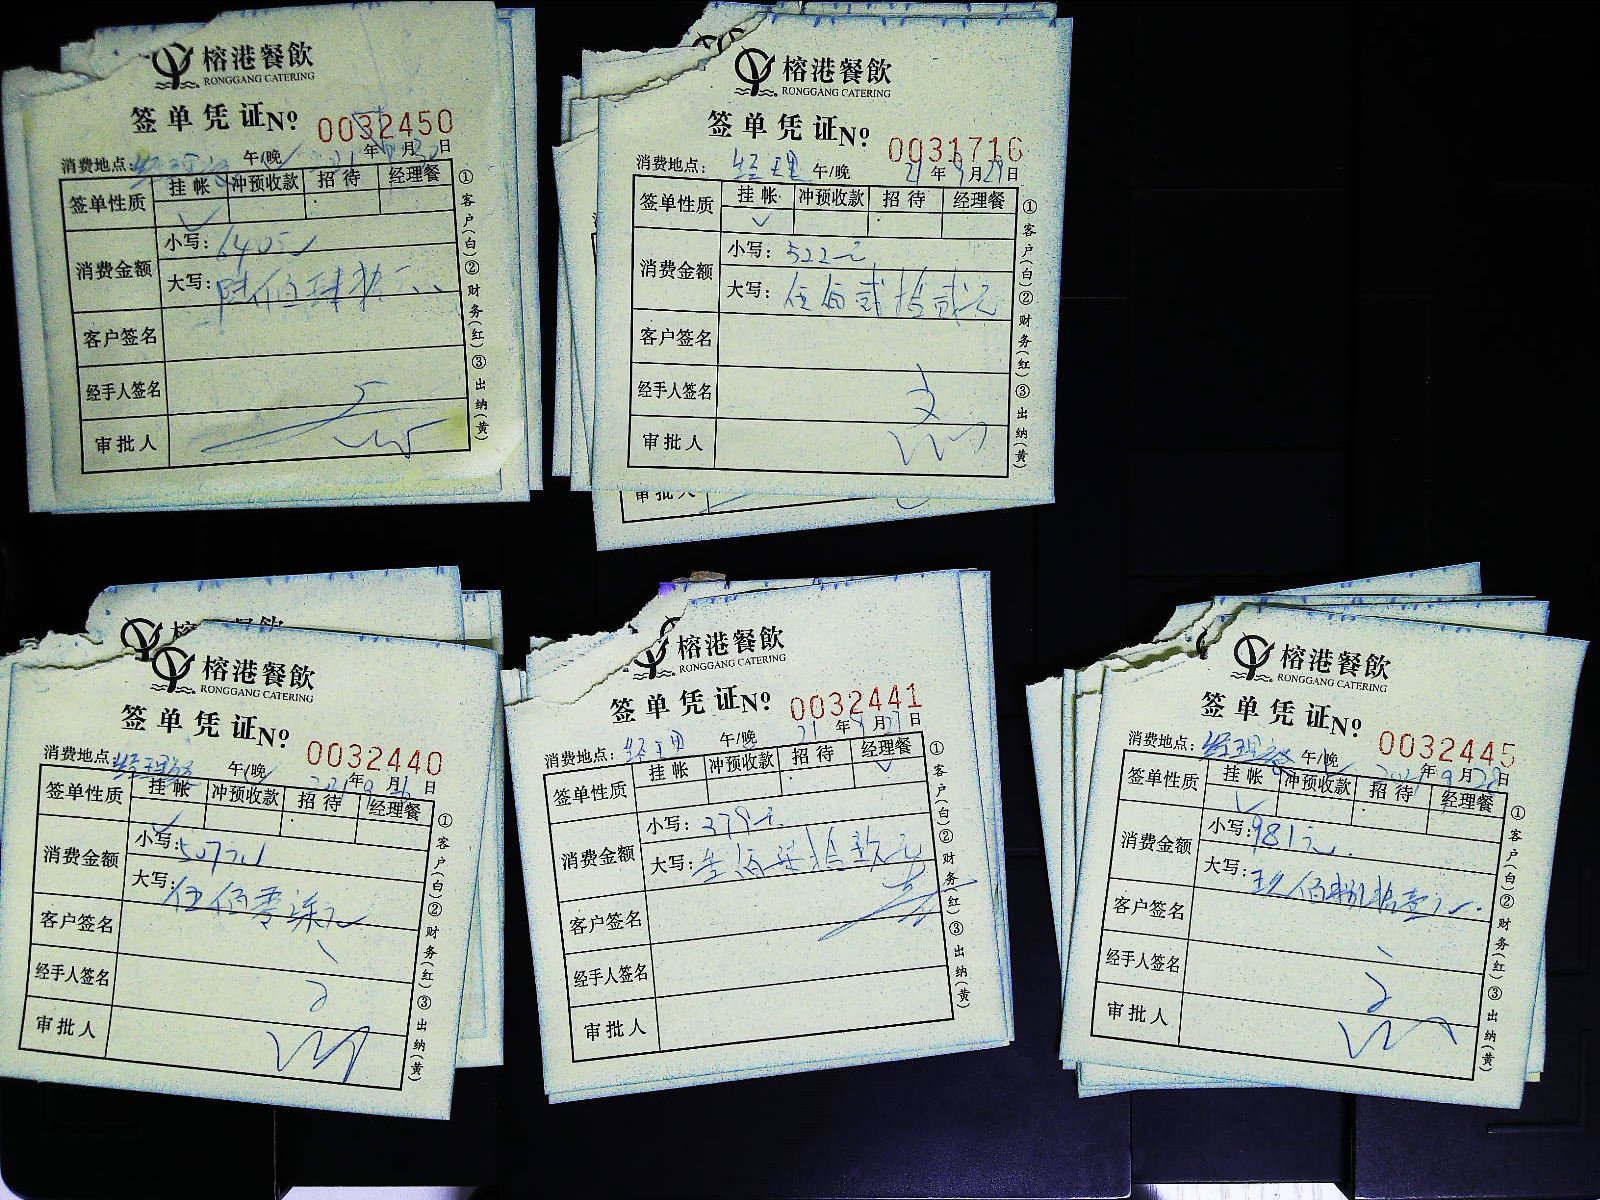 榕港餐飲
RONGGANG CATERING
签单凭证№ 0032450
消费地点: 午/晚 年 月 日
签单性质 挂帐 冲预收款 招待 经理餐
消费金额 小写: 640元
大写: 陆佰肆拾元
客户签名
经手人签名
审批人
①客户(白)②财务(红)③出纳(黄)
榕港餐飲
RONGGANG CATERING
签单凭证№ 0031716
消费地点: 经理 午/晚 21年9月29日
签单性质 挂帐 冲预收款 招待 经理餐
消费金额 小写: 522元
大写: 伍佰贰拾贰元
客户签名
经手人签名
审批人
①客户(白)②财务(红)③出纳(黄)
审批人
榕港餐飲
RONGGANG CATERING
签单凭证№ 0032440
消费地点: 午/晚 年 月 日
签单性质 挂帐 冲预收款 招待 经理餐
消费金额 小写: 507元
大写: 伍佰零柒元
客户签名
经手人签名
审批人
①客户(白)②财务(红)③出纳(黄)
榕港餐飲
RONGGANG CATERING
签单凭证№ 0032441
消费地点: 经理 午/晚 21年9月27日
签单性质 挂帐 冲预收款 招待 经理餐
消费金额 小写:
大写:
客户签名
经手人签名
审批人
①客户(白)②财务(红)③出纳(黄)
榕港餐飲
RONGGANG CATERING
签单凭证№ 0032445
消费地点: 经理餐 午/晚 2021年9月28日
签单性质 挂帐 冲预收款 招待 经理餐
消费金额 小写: 981元
大写: 玖佰捌拾壹元
客户签名
经手人签名
审批人
①客户(白)②财务(红)③出纳(黄)